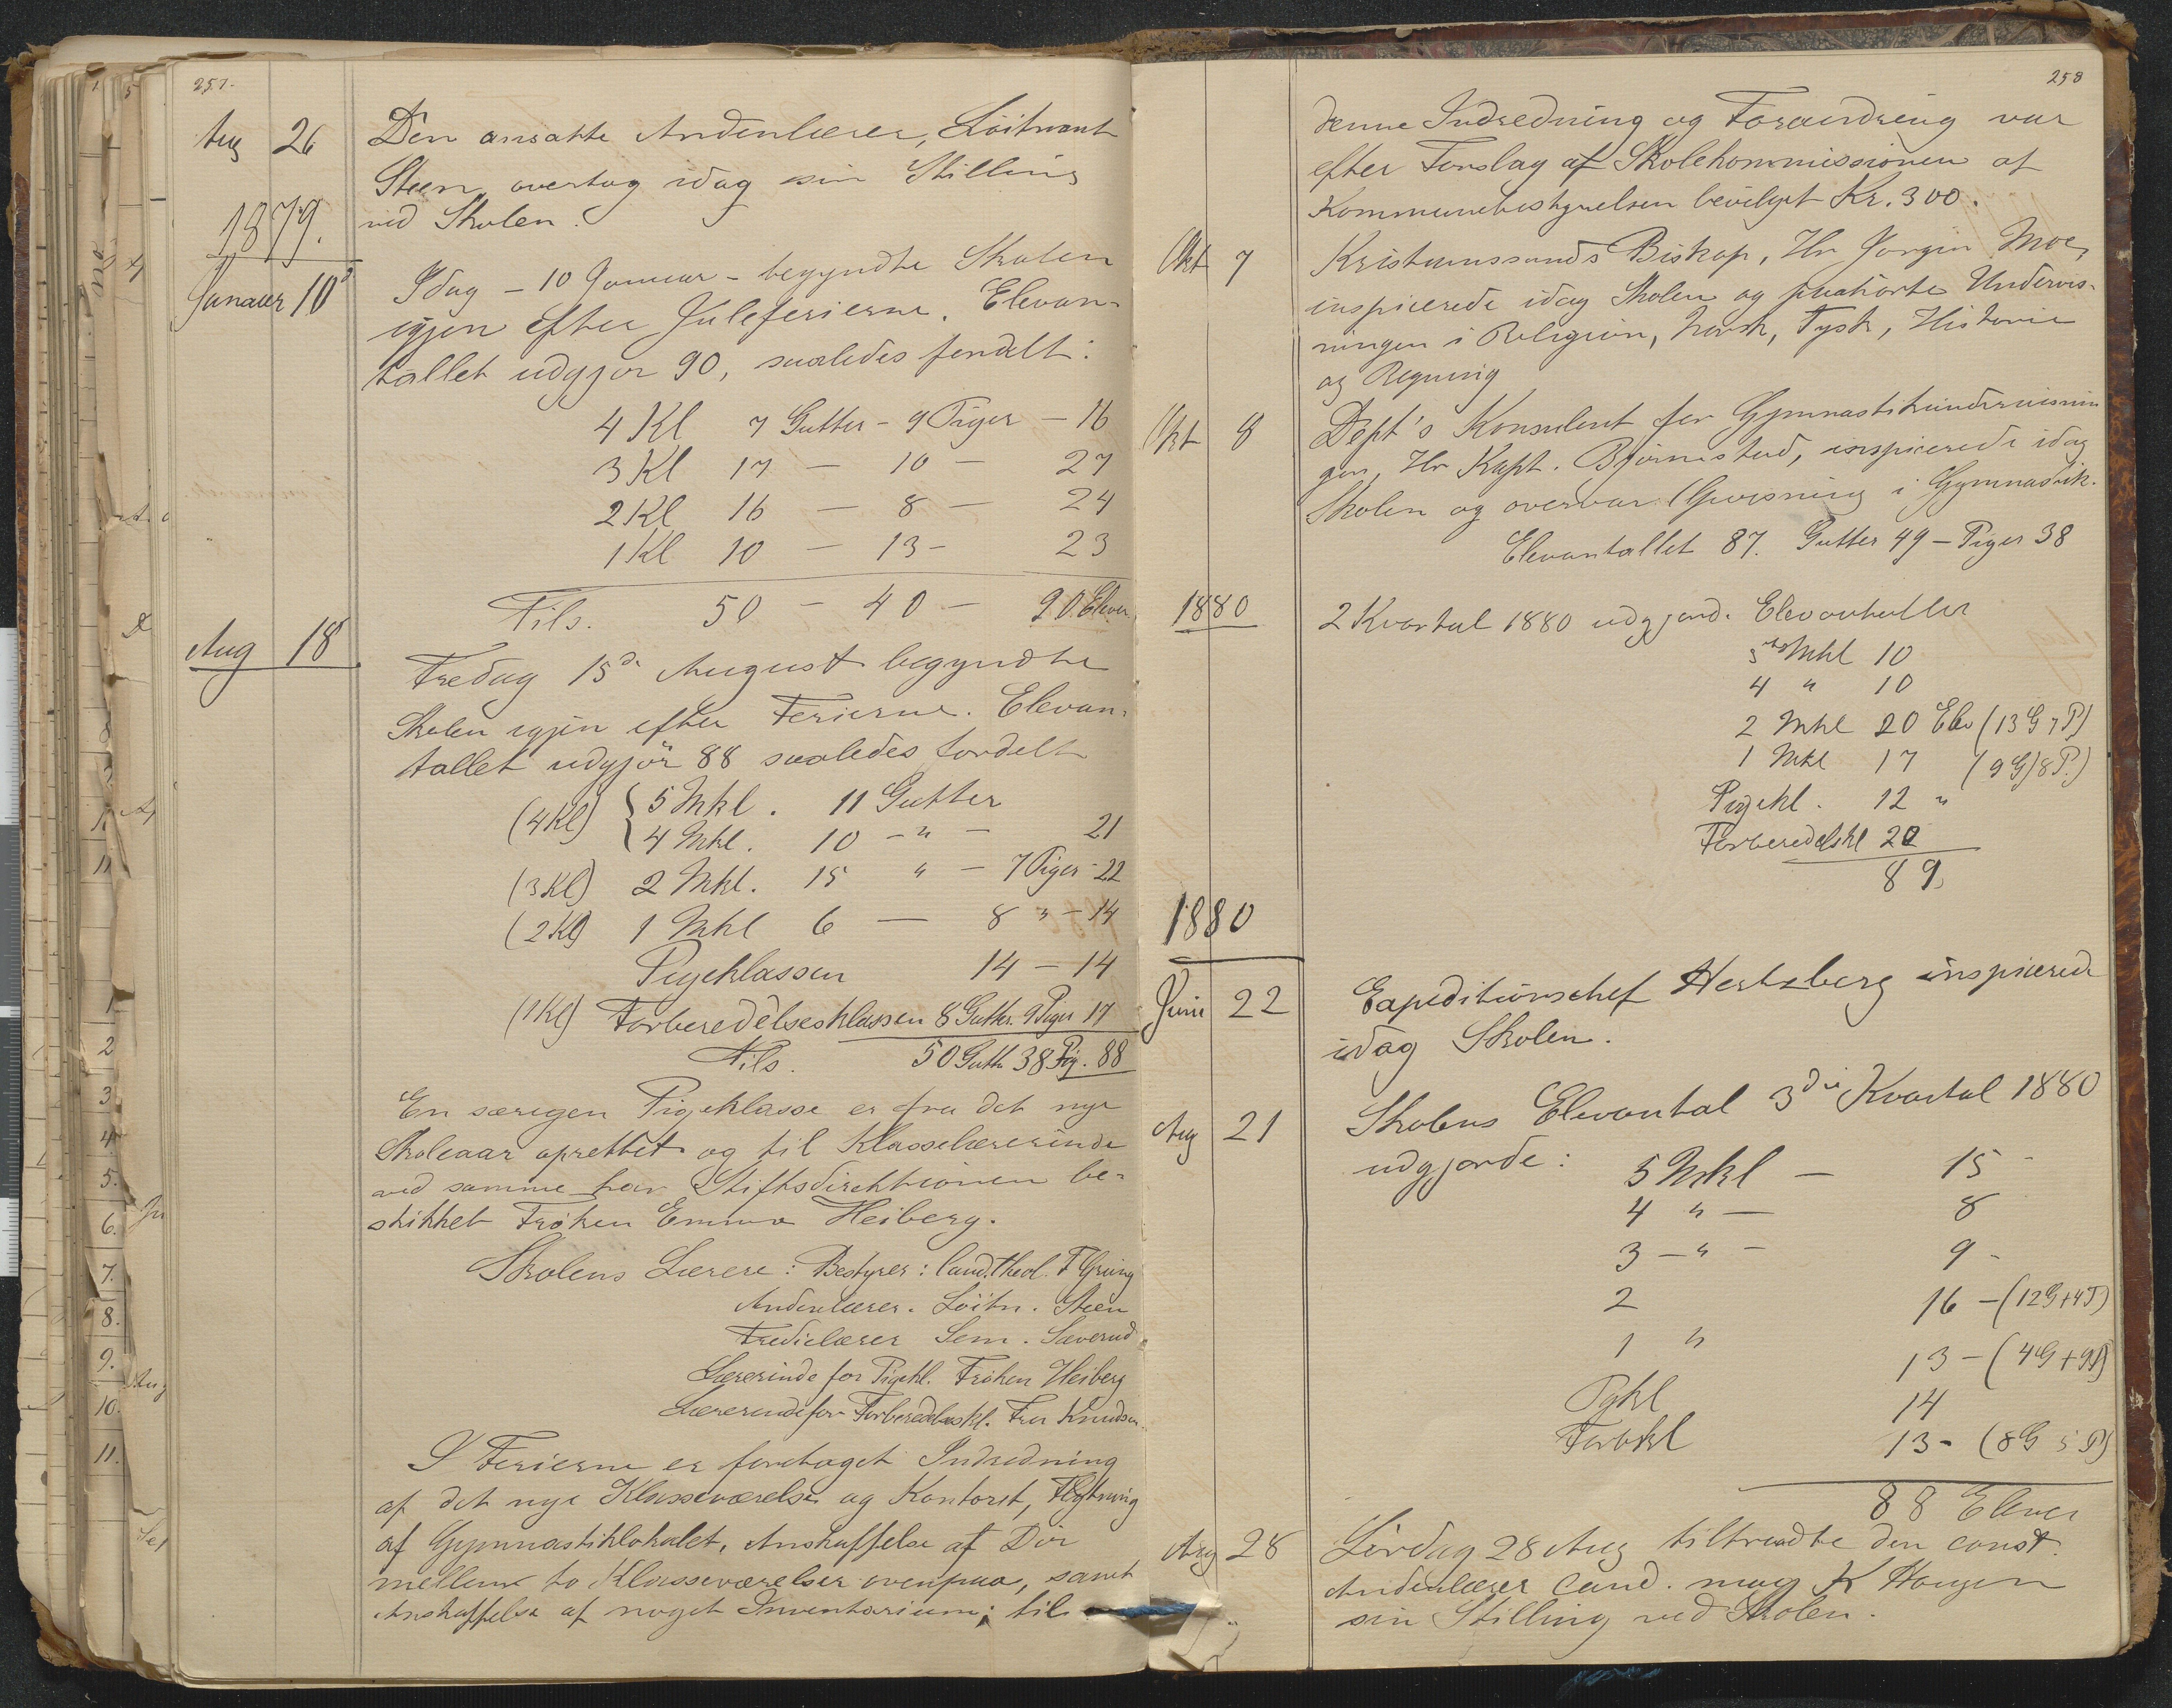 257.
Aug 26 Den ansatte Andenlærer, Löitnant
Steen overtog idag sin Stilling
ved Skolen.
1879.
Januar 10d Idag - 10 Januar - begyndte Skolen
igjen efter Juleferierne. Elevan-
tallet udgjør 90, saaledes fordelt:
4 Kl 7 Gutter - 9 Piger - 16
3 Kl 17 - 10 - 27
2 Kl 16 - 8 - 24
1 Kl 10 - 13 - 23
Tils. 50 - 40 - 90 Elever.
Aug 18 Fredag 15d August begyndte
Skolen igjen efter Ferierne. Elevan-
tallet udgjör 88 saaledes fordelt
(4 Kl) { 5 Mkl. 11 Gutter
4 Mkl. 10 - " - 21
(3 Kl) 2 Mkl. 15 " - 7 Piger - 22
(2 Kl) 1 Mkl 6 - 8 " - 14
Pigeklassen 14 - 14
(1 Kl) Forberedelsesklassen 8 Gutter. 9 Piger 17
Tils. 50 Gutt. 38 Pig. 88
En særegen Pigeklasse er fra det nye
Skoleaar oprettet og til Klasselærerinde
ved samme har Stiftsdirektionen be-
skikket Frøken Emma Heiberg.
Skolens Lærere: Bestyrer: Cand. theol. F Grung
Andenlærer. Löitn. Steen
Tredielærer Sem. Saverud
Lærerinde for Pigekl. Frøken Heiberg
Lærerinde for Forberedelseskl. Fru Knudsen.
I Ferierne er foretaget Indredning
af det nye Klasseværelse og Kontoret, Flytning
af Gymnastiklokalet, Anskaffelse af Dör
mellem to Klasseværelser ovenpaa, samt
Anskaffelse af noget Inventarium; til
258
denne Indredning og Forandring var
efter Forslag af Skolekommissionen af
Kommunebestyrelsen bevilget Kr. 300.
Okt 7 Kristianssands Biskop, Hr Jørgen Moe,
inspicerede idag Skolen og paahørte Undervis-
ningen i Religion, Norsk, Tysk, Historie
og Regning
Okt 8 Dept's Konsulent for Gymnastikundervisnin
gen, Hr Kapt. Bjørnstad, inspicerede idag
Skolen og overvar Opvisning i Gymnastik.
Elevantallet 87. Gutter 49 - Piger 38
1880 2 Kvartal 1880 udgjorde Elevantallet
5 Mkl 10
4 " 10
2 Mkl 20 Elev (13 G 7 P)
1 Mkl 17 (9 G) 8 P.)
Pigekl. 12 "
Forberedelskl 20
89
1880
Juni 22 Expeditionschef Hertzberg inspicerede
idag Skolen.
Aug 21 Skolens Elevantal 3die Kvartal 1880
udgjorde: 5 Mkl - 15 -
4 " - 8
3 - " - 9 -
2 16 - (12 G + 4 P)
1 " 13 - (4 G + 9 P)
Pgkl 14
Forbkl 13 - (8 G 5 P)
88 Elever
Aug 28 Lördag 28 Aug tiltraadte den const.
Andenlærer Cand. mag K Haugen
sin Stilling ved Skolen.